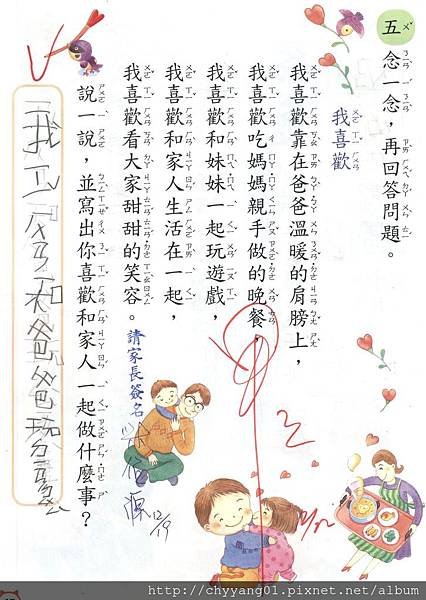 五 念一念，再回答問題。
我喜歡
我喜歡靠在爸爸溫暖的肩膀上，
我喜歡吃媽媽親手做的晚餐，
我喜歡和妹妹一起玩遊戲，
我喜歡和家人生活在一起，
我喜歡看大家甜甜的笑容。
請家長簽名
12/19
說一說，並寫出你喜歡和家人一起做什麼事？
我ㄒㄧˇㄏㄨㄢ和爸爸玩
http://chyyang01.pixnet.net/album